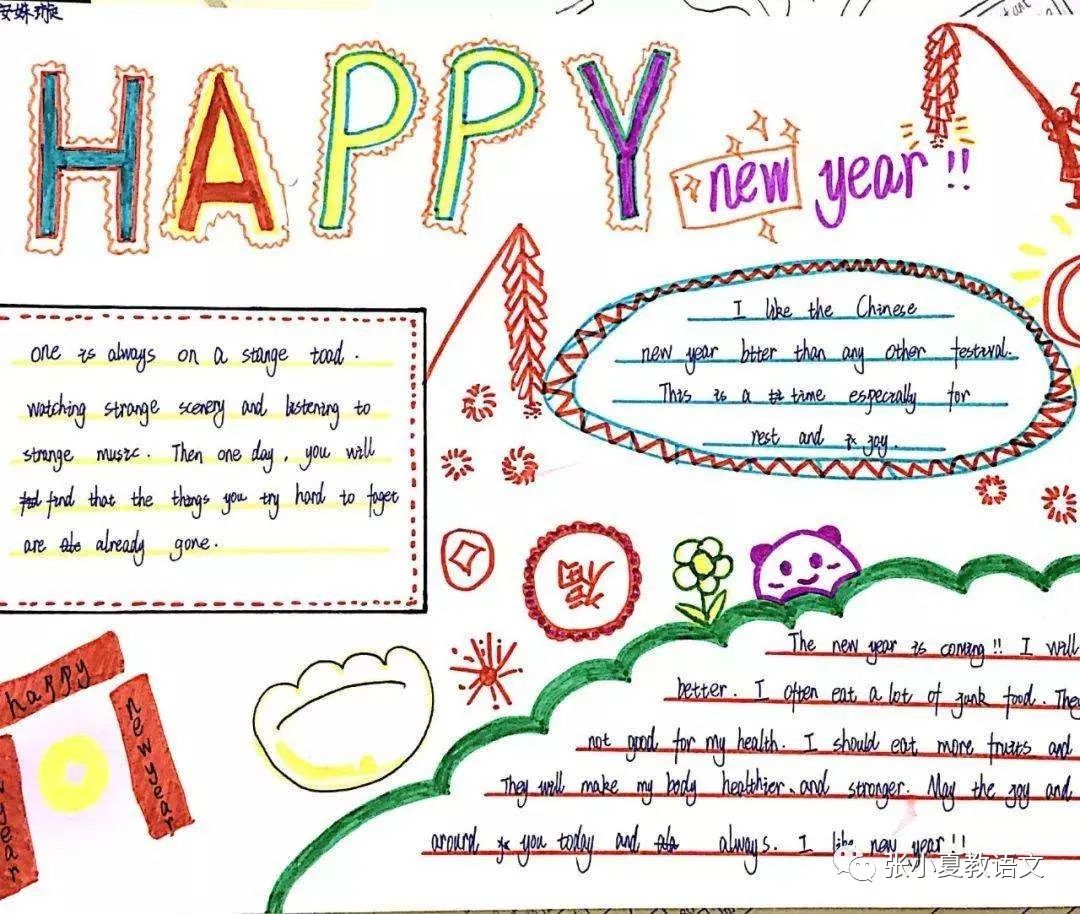 安姝璇
HAPPY
new year!!
I like the Chinese
new year btter than any other festival.
This is a time especially for
rest and joy.
one is always on a stange toad.
watching strange scenery and listening to
strange music. Then one day, you will
find that the things you try hard to foget
are already gone.
福
The new year is coming!! I will
better. I often eat a lot of junk food. They
not good for my health. I should eat more fruits and
They will make my body healthier, and stronger. May the joy and
around you today and always. I like new year!!
happy
new year
year
张小夏教语文